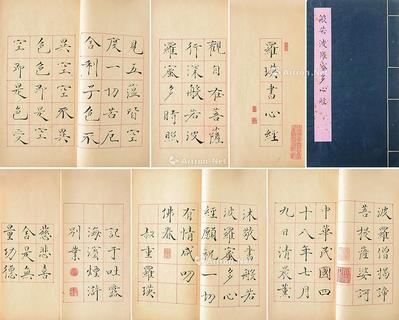 般若波羅蜜多心經
羅瑛書心經
觀自在菩薩
行深般若波
羅蜜多時照
見五蘊皆空
度一切苦厄
舍利子色不
異空空不異
色色即是空
空即是色受
波羅僧揭諦
菩提薩婆訶
中華民國四
十八年七月
九日清晨薰
沐敬書般若
波羅蜜多心
經願祝一切
有情咸叨
佛眷
叔重羅瑛
記于吐露
海濱煙滸
別業
慈悲喜
舍是無
量功德